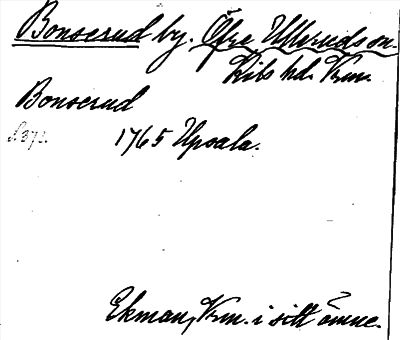 Bonserud by. Öfre Ulleruds sn.
Kils hd. Krm.
Bonserud
S. 373. 1765 Upsala.
Ekman, Krm. i sitt ämne.